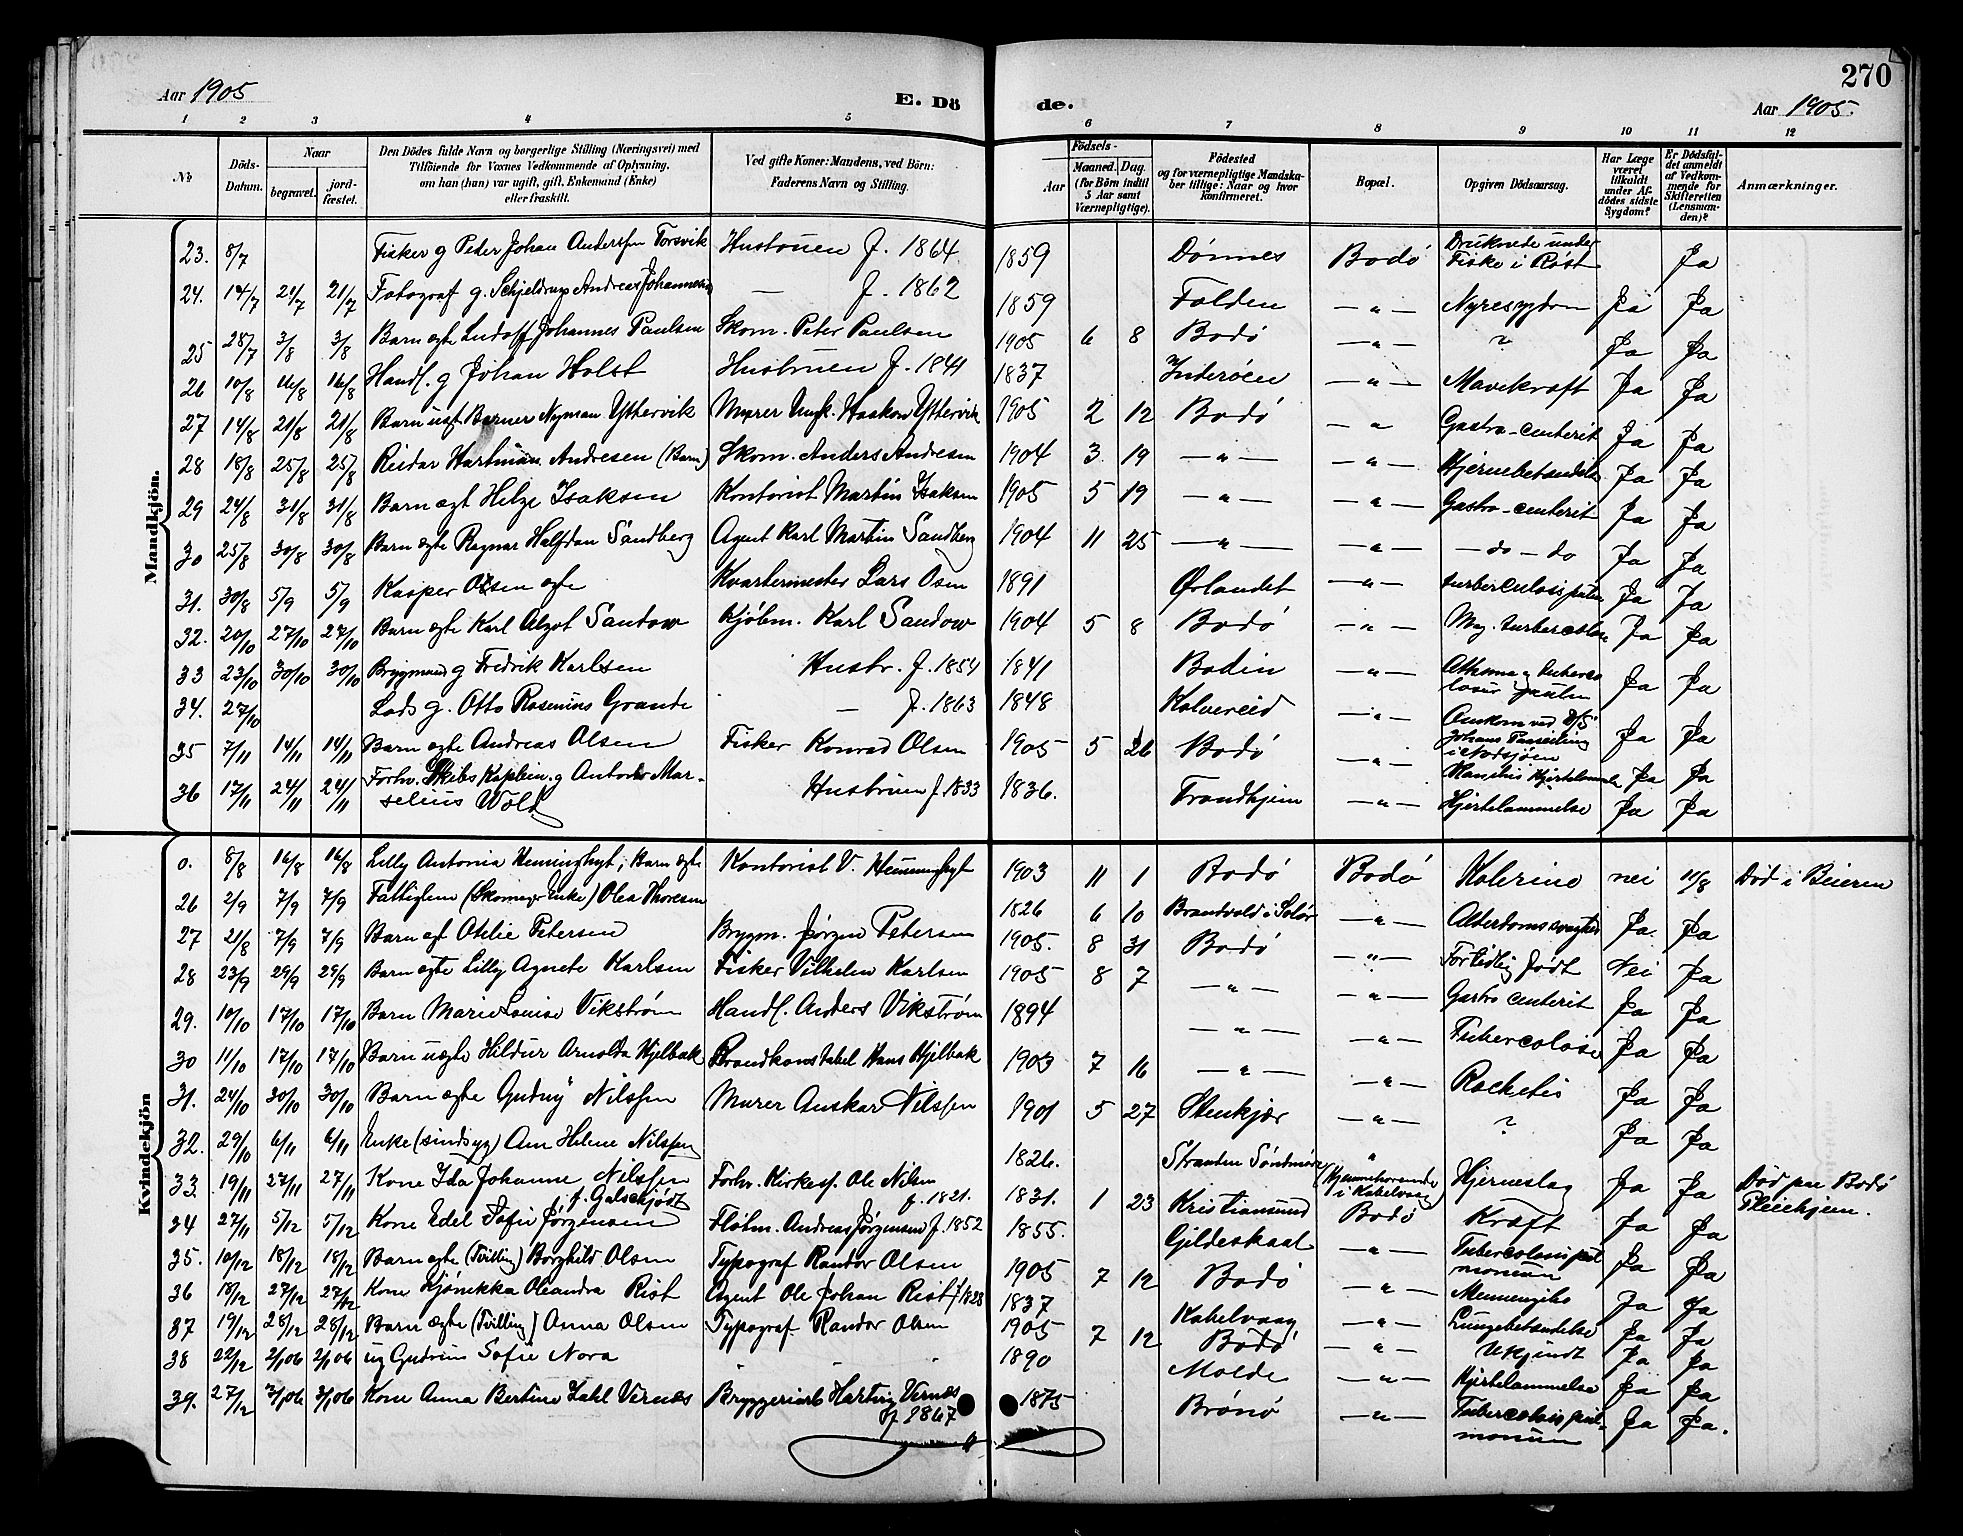 270
Aar 1905
E. Dö de.
Aar 1905.
1 2 3 4 5 6 7 8 9 10 11 12
No
Döds-Datum.
Naar
begravet.
jord-fæstet.
Den Dödes fulde Navn og borgerlige Stilling (Næringsvei) med
Tilföiende for Voxnes Vedkommende af Oplysning,
om han (hun) var ugift, gift, Enkemand (Enke)
eller fraskilt.
Ved gifte Koner: Mandens, ved Börn:
Faderens Navn og Stilling.
Födsels-
Aar
Maaned. Dag.
(for Börn indtil
5 Aar samt
Værnepligtige).
Födested
og for værnepligtige Mandska-
ber tillige: Naar og hvor
konfirmeret.
Bopæl.
Opgiven Dödsaarsag.
Har Læge
været
tilkaldt
under Af-
dödes sidste
Sygdom?
Er Dödsfal-
det anmeldt
af Vedkom-
mende for
Skifteretten
(Lensman-
den)?
Anmærkninger.
Mandkjön.
23. 8/7 Fisker g Peder Johan Anderssen Torsvik Hustruen f. 1864 1859 Dønnes Bodø Druknede under Fiske i Røst Ja
24. 14/7 21/7 21/7 Fotograf g. Schjeldrup Andreas Johannesen — f. 1862 1859 Folden —"— Nyresygdom Ja Ja
25 28/7 3/8 3/8 Barn ægte Ludolf Johannes Paulsen Skom. Peter Paulsen 1905 6 8 Bodø —"— ? Ja Ja
26 10/8 16/8 16/8 Handl. g Johan Holst Hustruen f. 1844 1837 Inderøen —"— Mavekræft Ja Ja
27 14/8 21/8 21/8 Barn uægt Berner Nyman Yttervik Murer Ungk. Haakon Yttervik 1905 2 12 Bodø —" Gastro-centerit Ja Ja
28 18/8 25/8 25/8 Reidar Hartman Andresen (Barn) Skom. Anders Andresen 1904 3 19 —"— —"— Hjernebetændelse Ja Ja
29 24/8 31/8 31/8 Barn ægt Helge Isaksen Kontorist Martin Isaksen 1905 5 19 —"— —"— Gastro-centerit Ja Ja
30 25/8 30/8 30/8 Barn ægte Ragnar Halfdan Sandberg Agent Karl Martin Sandberg 1904 11 25 —"— —"— —do—do Ja Ja
31. 30/8 5/9 5/9 Kasper Olsen ægte Kvartermester Lars Osen 1891 Ørlandet —"— turberculosis pulm Ja Ja
32. 20/10 27/10 27/10 Barn ægte Karl Algot Sandow Kjøbm. Karl Sandow 1904 5 8 Bodø —"— turbercolose Ja Ja
33 23/10 30/10 30/10 Bryggmand g Fredrik Karlsen Hustr. f. 1854 1841 Bodin —"— Athsma g tuberco losur pulm Ja Ja
34. 27/10 Lods g. Otto Rosenius Grande — f. 1863 1848 Kolvereid —"— Omkom ved D/S Johans i Nordsjøen Ja Ja
35 7/11 14/11 14/11 Barn ægte Andreas Olsen Fisker Konrad Olsen 1905 5 26 Bodø —"— Hjertelammelse Ja Ja
36 17/11 24/11 24/11 Forhv. Skibs Kaptein g Anton Mar-
selius Wold Hustruen f. 1833 1836. Trondhjem —"— Hjertelammelse Ja Ja
Kvindekjön
0. 8/8 16/8 16/8 Lilly Antonia Hemminghyt, Barn ægte Kontorist V. Hemminghyt 1903 11 1 Bodø Bodø Kolerine nei 11/8 Død i Beieren
26 2/9 7/9 7/9 Fattiglem (Skomager Enke) Olea Thoresen 1826 6 10 Brandvold i Solør —"— Alderdomssvaghed Ja. Ja
27 21/8 7/9 7/9 Barn æt Otelie Petersen Brygm. Jørgen Petersen 1905. 8 31 Bodø —"— Fortidlig født Nei Ja
28 23/9 29/9 29/9 Barn ægte Lilly Agnete Karlsen Fisker Vilhelm Karlsen 1905 8 7 —"— —"— Gastro centerit Ja Ja
29. 10/10 17/10 17/10 Barn Marie Louise Vikstrøm Handl. Anders Vikstrøm 1894 —"— —"— Tubercolose Ja Ja
30 11/10 17/10 17/10 Barn uægte Hildur Arnolda Hjelbak Brandkonstabel Hans Hjelbak 1903 7 16 —"— —"— Rachetis Ja Ja
31. 24/10 30/10 30/10 Barn ægte Gudny Nilssen Murer Anskar Nilssen 1901 5 27 Stenkjær —"— ? Ja Ja
32. 29/10 6/11 6/11 Enke (sindsyg) Ane Helene Nilssen 1826. Stranden Søndmøre (Hjemmehørende i Kabelvaag) Hjerneslag Ja Ja Død paa Bodø Pleiehjem.
33. 19/11 27/11 27/11 Kone Ida Johanne Nilssen
f. Galschjødt Forhv. Kirkesf. Ole Nilsen f. 1821. 1831. 1 23 Kristiansund Bodø Kræft Ja Ja
34 27/11 5/12 5/12 Kone Edel Sofie Jørgensen Fløtm. Andreas Jørgensen f. 1852 1855. Gjildeskaal —"— Tubercolosis pul monum Ja Ja
35. 10/12 18/12 18/12 Barn ægte (Tvilling) Borghild Olsen Typograf Randor Olsen 1905 7 12 Bodø —"— Ja Ja
36 18/12 27/12 27/12 Kone Oleandra Rist Agent Ole Johan Rist f 1828 1837 Kabelvaag Lungebetændelse Ja Ja
37 19/12 28/12 28/12 Barn ægte (Tvilling) Anna Olsen Typograf Randor Olsen 1905 7 12 Bodø —"— Ukjendt Ja Ja
38 22/12 2/1 06 2/1 06 ug Gudrun Sofie Nora " " " 1890 Molde —"— Hjertelammelse Ja Ja
39. 27/12 3/1 06 3/1 06 Kone Anna Bertine Dahl Vernæs Bryggeriarb Hartvig Vernæs
f 1867 1875 Brønø —"— Tubercolosis pul-
monum Ja Ja.